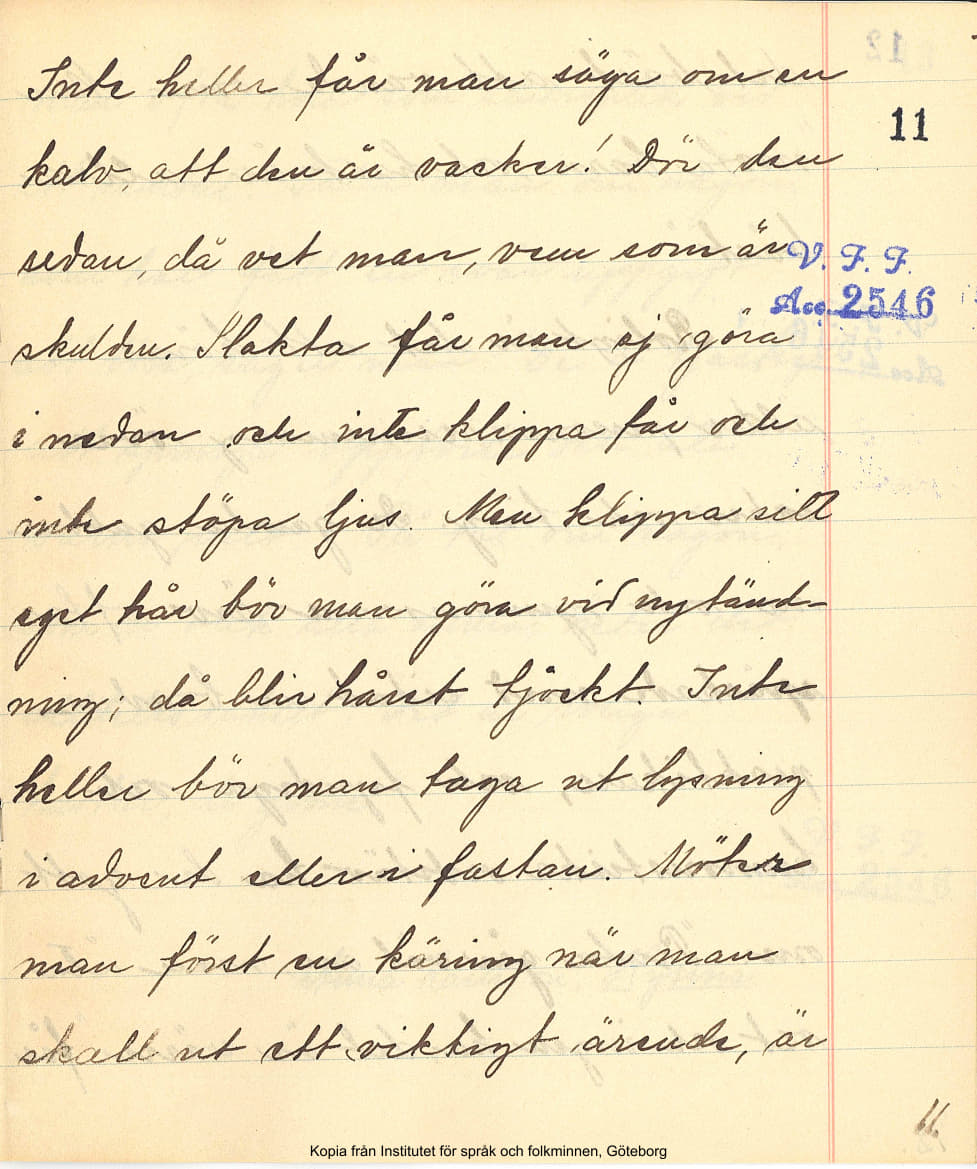 Inte heller får man säga om en
11
kalv, att den är vacker! Dör den
sedan, då vet man, vem som är
V. F. F.
Acc. 2546
skulden. Slakta får man ej göra
i nedan och inte klippa får och
inte stöpa ljus. Men klippa sitt
eget hår bör man göra vid nytänd-
ning; då blir håret tjockt. Inte
heller bör man taga ut lysning
i advent eller i fastan. Möter
man först en käring när man
skall ut ett viktigt ärende, är
11
Kopia från Institutet för språk och folkminnen, Göteborg